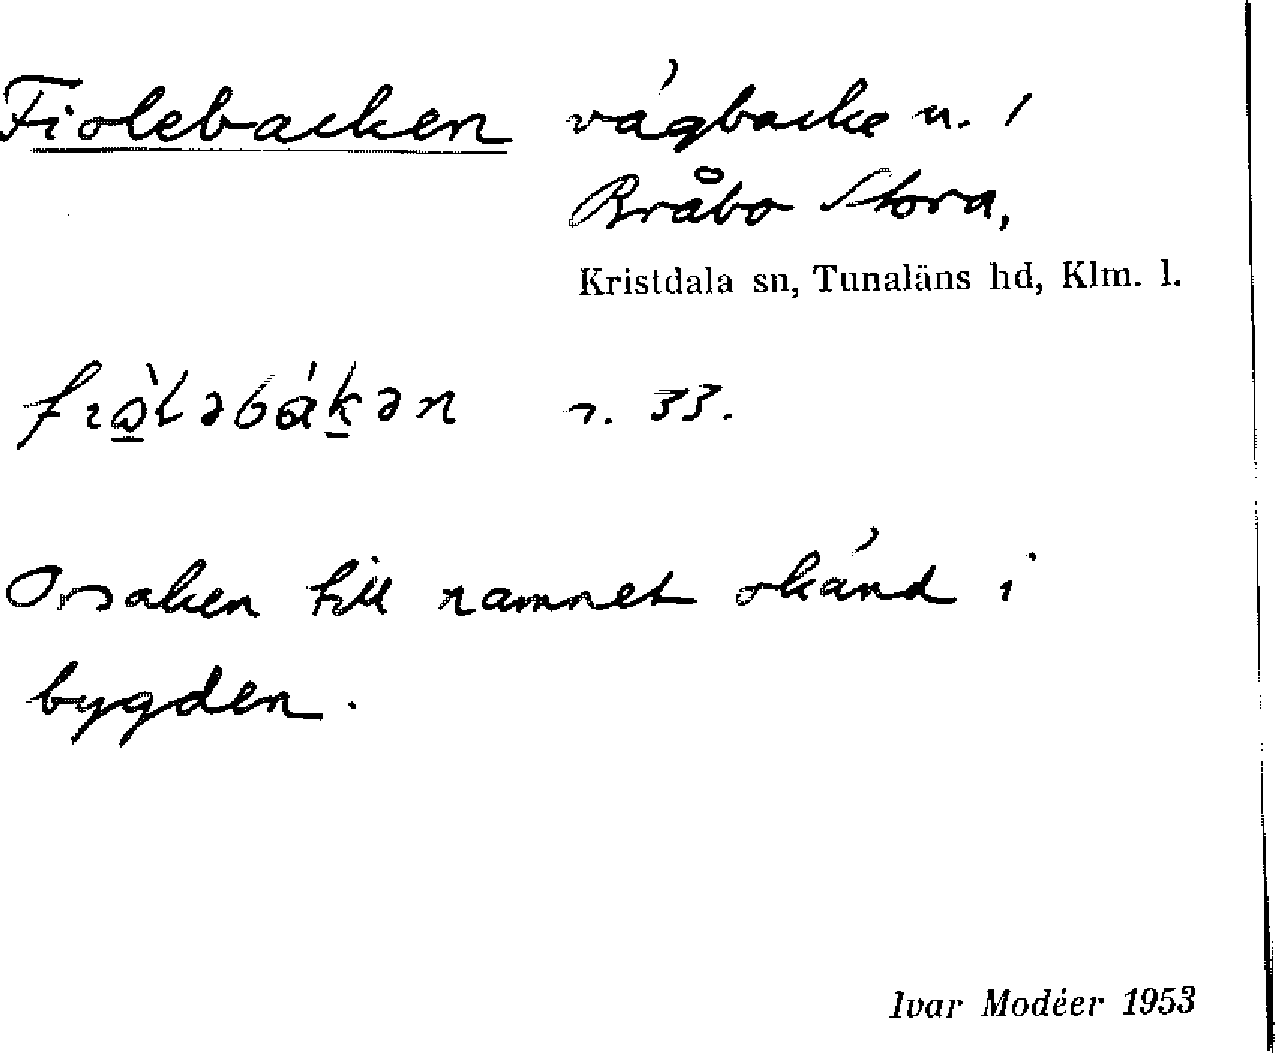 Fiolebacken vägbacke n. i
Bråbo Stora,
Kristdala sn, Tunaläns hd, Klm. l.
fıò̱ləbákən r. 33.
Orsaken till namnet okänd i
bygden.
Ivar Modéer 1953